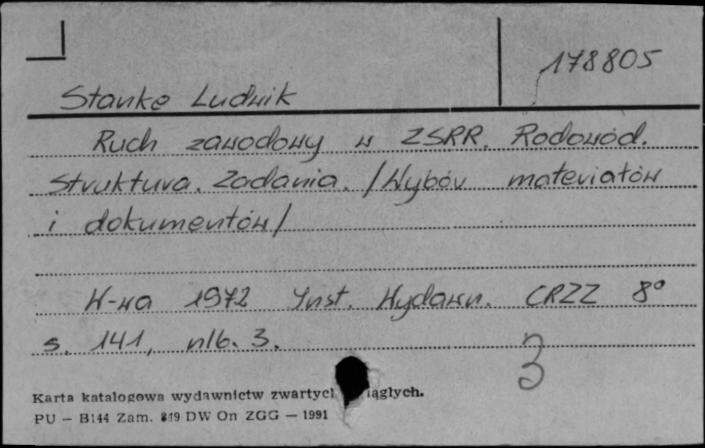 178805
Stanke Ludwik
Ruch zawodowy w ZSRR. Rodowód.
Struktura. Zadania. /Wybór materiałów
i dokumentów/
W-wa 1972 Inst. Wydawn. CRZZ 8°
s. 141, nlb. 3.
3
Karta katalogowa wydawnictw zwartyc iągłych.
PU — B144 Zam. 819 DW On ZGG — 1991